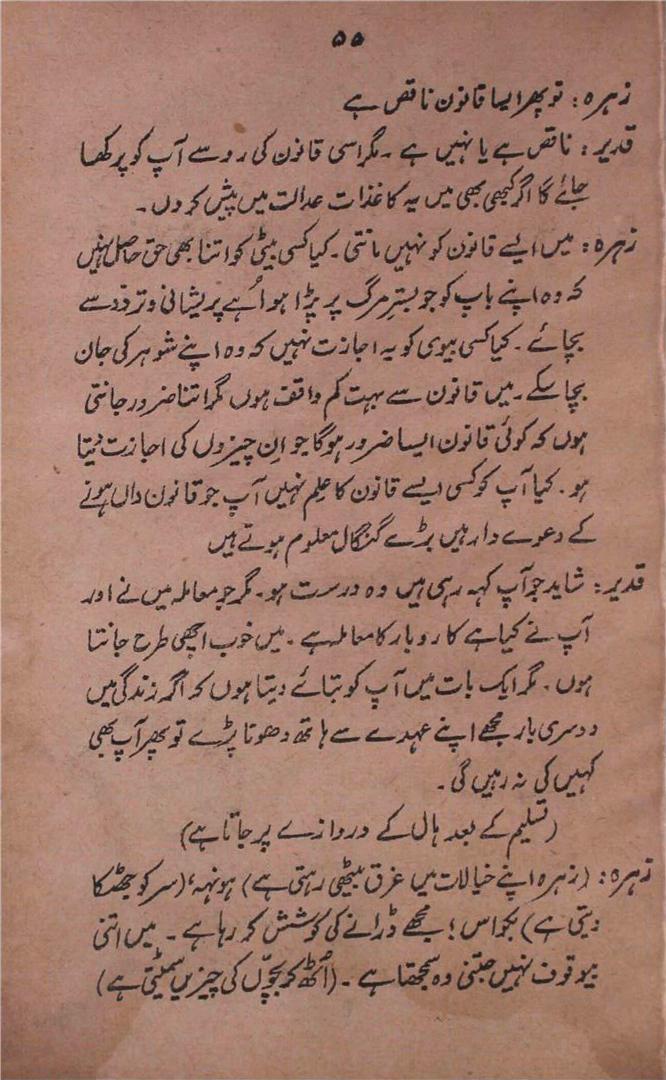 ۵۵
زہرہ: تو پھر ایسا قانون ناقص ہے
قدیر: ناقص ہے یا نہیں ہے ۔ مگر اسی قانون کی رو سے آپ کو پرکھا
جائے گا اگر کبھی بھی میں یہ کاغذات عدالت میں پیش کر دوں ۔
زہرہ: میں ایسے قانون کو نہیں مانتی ۔ کیا کسی بیٹی کو اتنا بھی حق حاصل نہیں
کہ وہ اپنے باپ کو جو بسترِ مرگ پر پڑا ہوا ہے پریشانی و تردّد سے
بچائے ۔ کیا کسی بیوی کو یہ اجازت نہیں کہ وہ اپنے شوہر کی جان
بچا سکے ۔ میں قانون سے بہت کم واقف ہوں مگر اتنا ضرور جانتی
ہوں کہ کوئی قانون ایسا ضرور ہوگا جو اِن چیزوں کی اجازت دیتا
ہو ۔ کیا آپ کو کسی ایسے قانون کا علم نہیں آپ جو قانون داں ہونے
کے دعوے دار ہیں بڑے کنگال معلوم ہوتے ہیں
قدیر: شاید جو آپ کہہ رہی ہیں وہ درست ہو ۔ مگر جو معاملہ میں نے اور
آپ نے کیا ہے کاروبار کا معاملہ ہے ۔ میں خوب اچھی طرح جانتا
ہوں ۔ مگر ایک بات میں آپ کو بتائے دیتا ہوں کہ اگر زندگی میں
دوسری بار مجھے اپنے عہدے سے ہاتھ دھونا پڑے تو پھر آپ بھی
کہیں کی نہ رہیں گی ۔
(تسلیم کے بعد ہال کے دروازے پر جاتا ہے)
زہرہ: (زہرہ اپنے خیالات میں غرق بیٹھی رہتی ہے) ہونہہ، (سر کو جھٹکا
دیتی ہے) بکواس! مجھے ڈرانے کی کوشش کر رہا ہے ۔ میں اتنی
بیوقوف نہیں جتنی وہ سمجھتا ہے ۔ (اُٹھ کر بچّوں کی چیزیں سمیٹتی ہے)